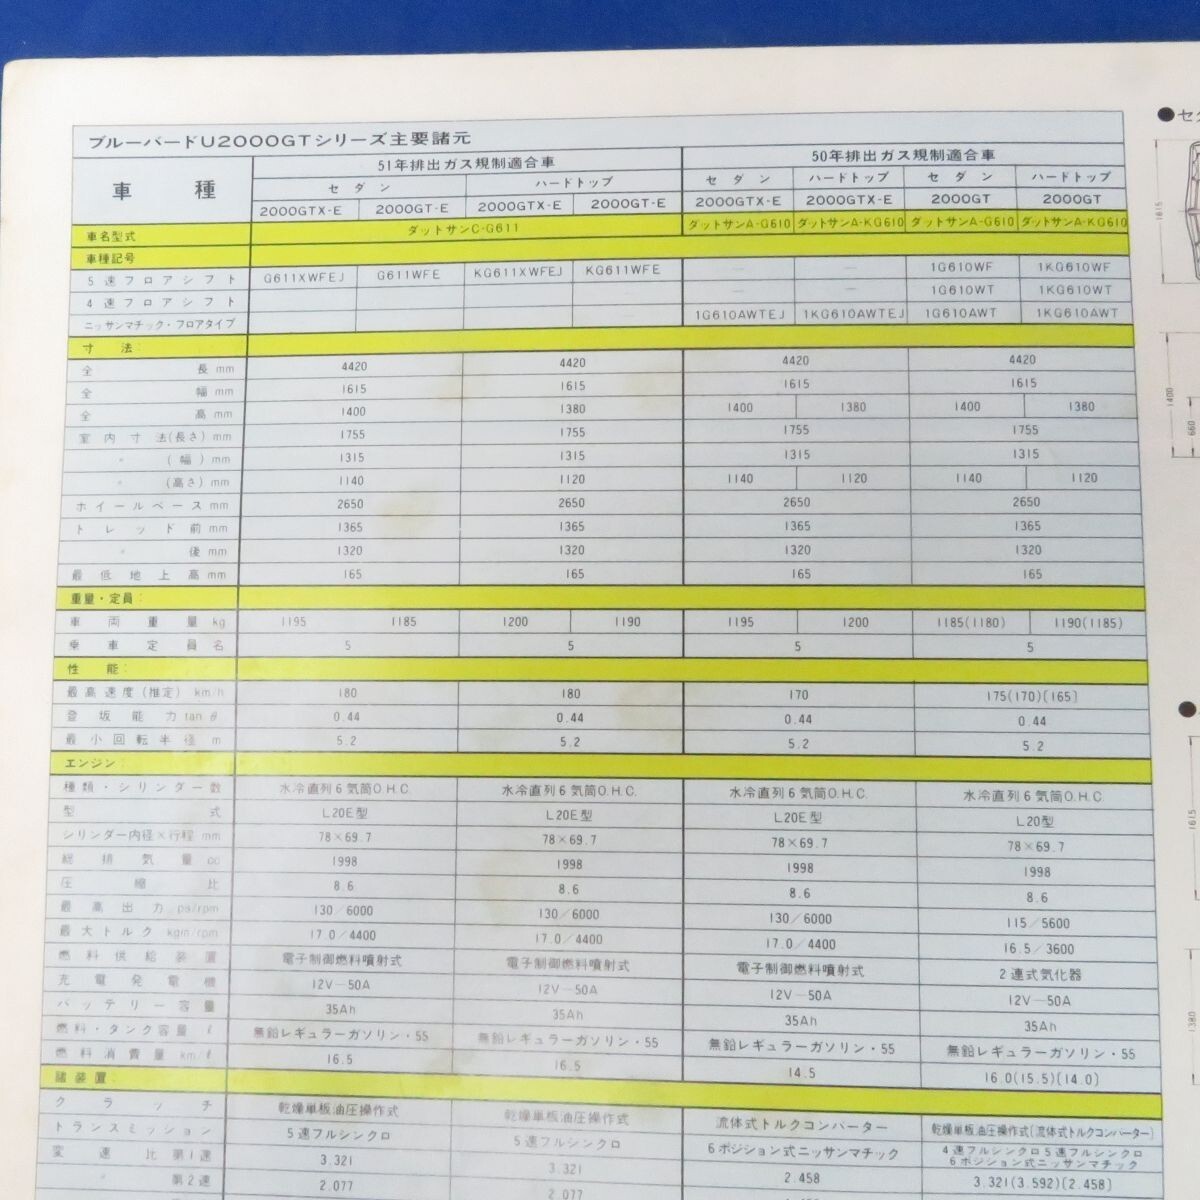 ブルーバードU2000GTシリーズ主要諸元
車 種 51年排出ガス規制適合車 50年排出ガス規制適合車
セダン ハードトップ セダン ハードトップ セダン ハードトップ
2000GTX-E 2000GT-E 2000GTX-E 2000GT-E 2000GTX-E 2000GTX-E 2000GT 2000GT
車名型式 ダットサンC-G611 ダットサンA-G610 ダットサンA-KG610 ダットサンA-G610 ダットサンA-KG610
車種記号
5速フロアシフト G611XWFEJ G611WFE KG611XWFEJ KG611WFE — — 1G610WF 1KG610WF
4速フロアシフト — — 1G610WT 1KG610WT
ニッサンマチック・フロアタイプ 1G610AWTEJ 1KG610AWTEJ 1G610AWT 1KG610AWT
寸法:
全長mm 4420 4420 4420 4420
全幅mm 1615 1615 1615 1615
全高mm 1400 1380 1400 1380 1400 1380
室内寸法(長さ)mm 1755 1755 1755 1755
〃 (幅)mm 1315 1315 1315 1315
〃 (高さ)mm 1140 1120 1140 1120 1140 1120
ホイールベースmm 2650 2650 2650 2650
トレッド前mm 1365 1365 1365 1365
〃 後mm 1320 1320 1320 1320
最低地上高mm 165 165 165 165
重量・定員:
車両重量kg 1195 1185 1200 1190 1195 1200 1185(1180) 1190(1185)
乗車定員名 5 5 5 5
性能:
最高速度(推定)km/h 180 180 170 175(170)[165]
登坂能力tanθ 0.44 0.44 0.44 0.44
最小回転半径m 5.2 5.2 5.2 5.2
エンジン:
種類・シリンダー数 水冷直列6気筒O.H.C. 水冷直列6気筒O.H.C. 水冷直列6気筒O.H.C. 水冷直列6気筒O.H.C.
型式 L20E型 L20E型 L20E型 L20型
シリンダー内径×行程mm 78×69.7 78×69.7 78×69.7 78×69.7
総排気量cc 1998 1998 1998 1998
圧縮比 8.6 8.6 8.6 8.6
最高出力ps/rpm 130/6000 130/6000 130/6000 115/5600
最大トルクkgm/rpm 17.0/4400 17.0/4400 17.0/4400 16.5/3600
燃料供給装置 電子制御燃料噴射式 電子制御燃料噴射式 電子制御燃料噴射式 2連式気化器
充電発電機 12V-50A 12V-50A 12V-50A 12V-50A
バッテリー容量 35Ah 35Ah 35Ah 35Ah
燃料・タンク容量ℓ 無鉛レギュラーガソリン・55 無鉛レギュラーガソリン・55 無鉛レギュラーガソリン・55 無鉛レギュラーガソリン・55
燃料消費量km/ℓ 16.5 16.5 14.5 16.0(15.5)[14.0]
諸装置:
クラッチ 乾燥単板油圧操作式 乾燥単板油圧操作式 流体式トルクコンバーター 乾燥単板油圧操作式[流体式トルクコンバーター]
トランスミッション 5速フルシンクロ 5速フルシンクロ 6ポジション式ニッサンマチック 4速フルシンクロ5速フルシンクロ
6ポジション式ニッサンマチック
変速比 第1速 3.321 3.321 2.458 3.321(3.592)[2.458]
〃 第2速 2.077 2.077
●セ
1615
1400
660
1615
1380